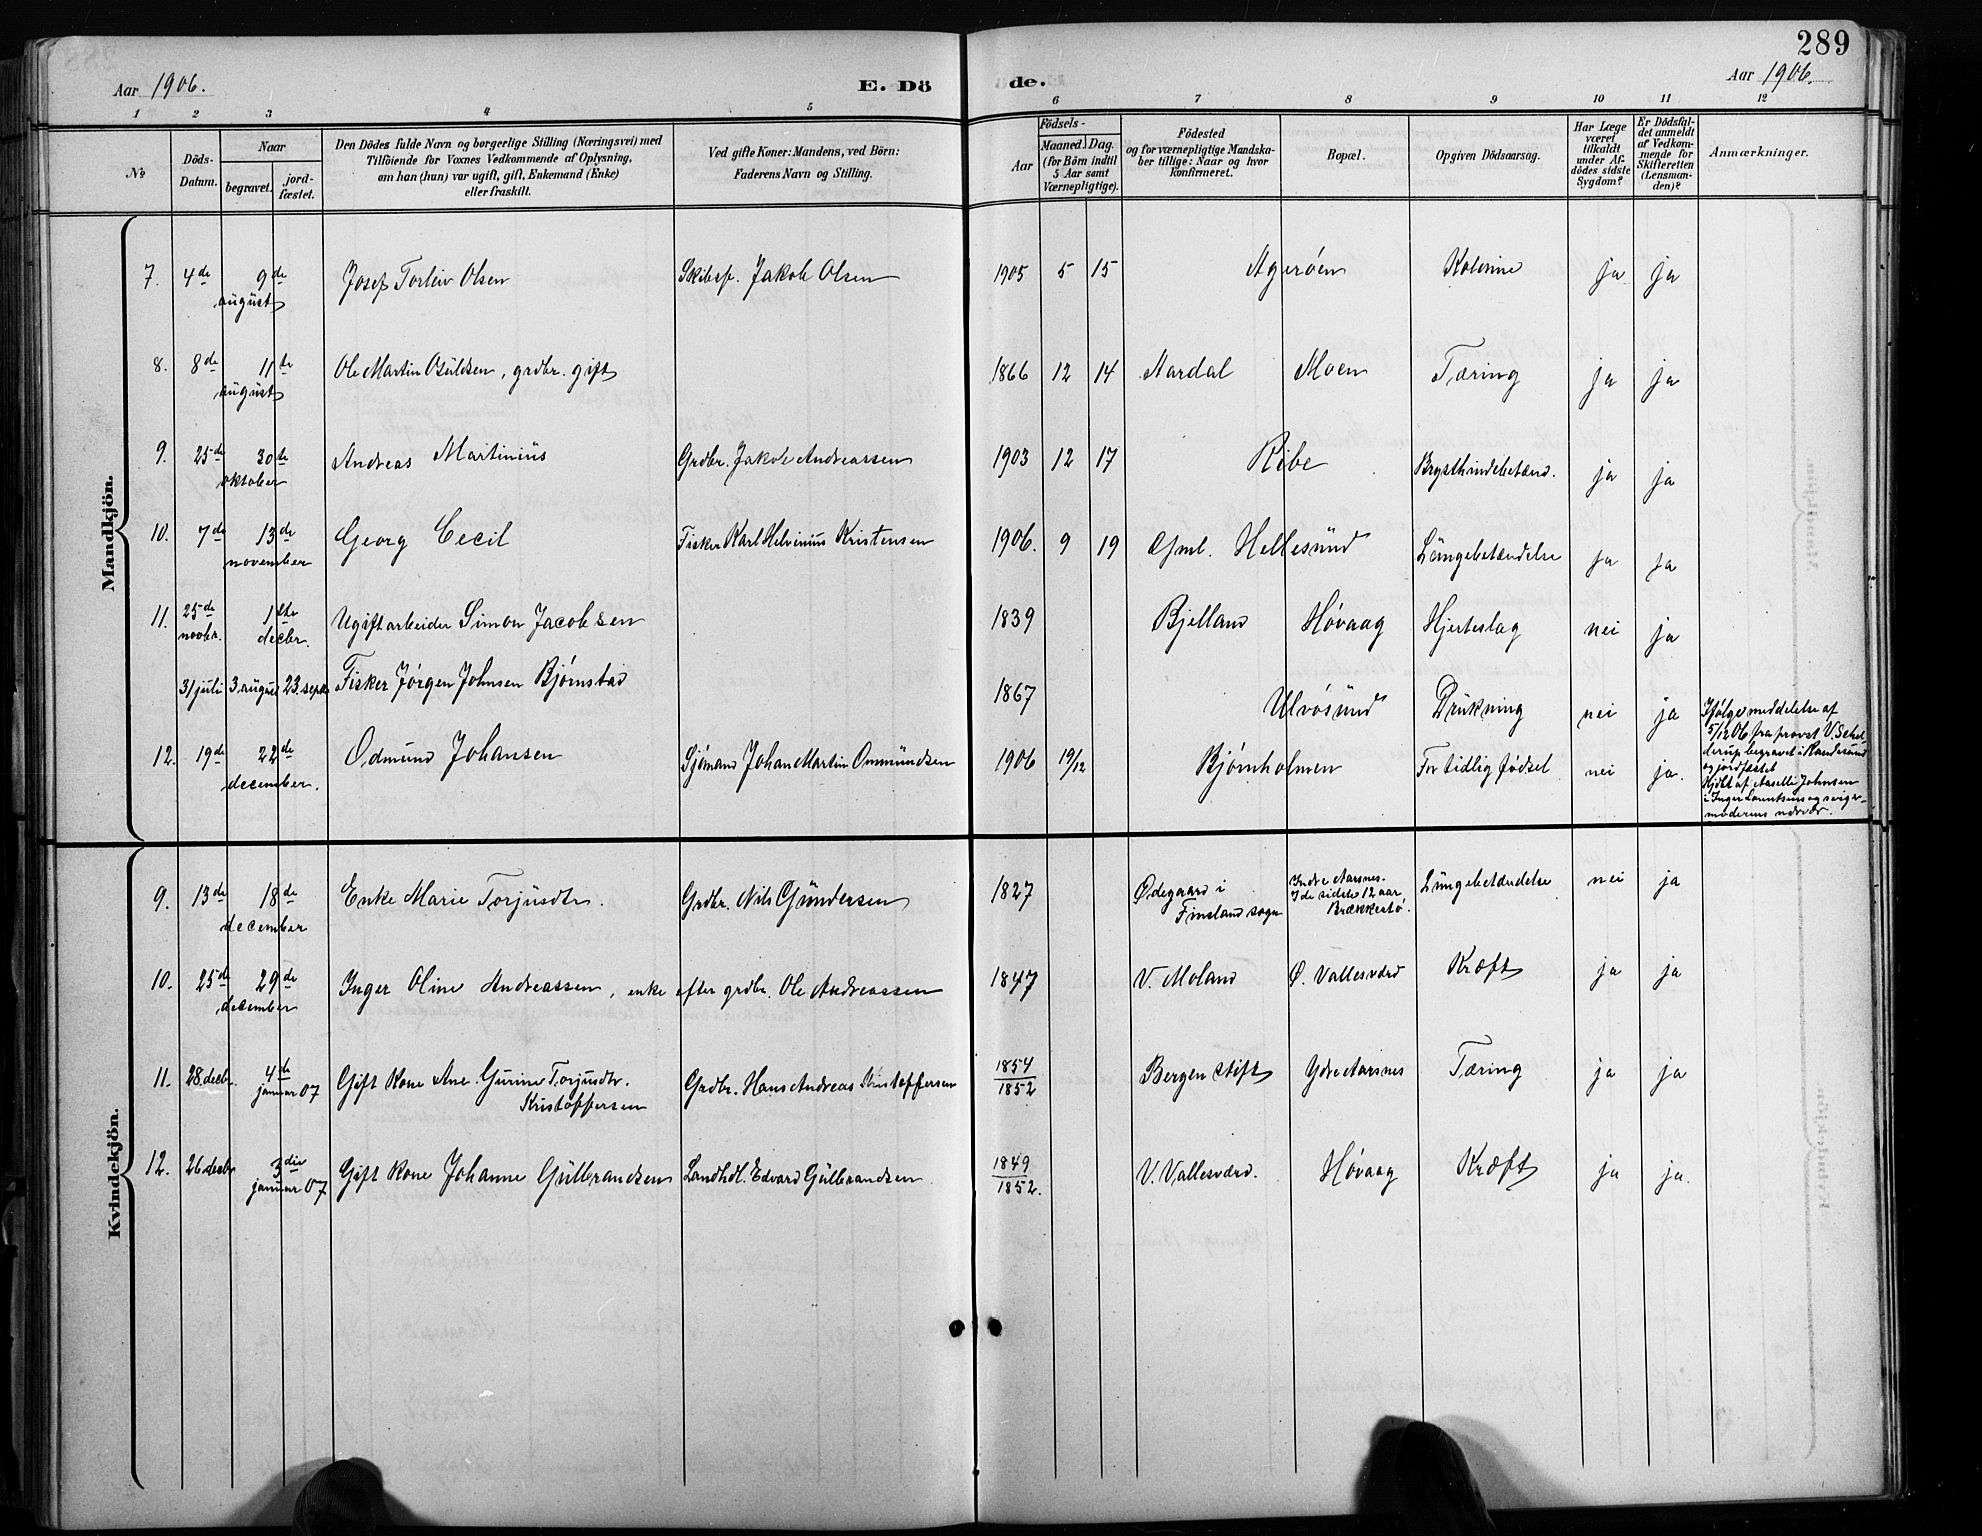 289
Aar 1906.
E. Döde.
Aar 1906.
1 2 3 4 5 6 7 8 9 10 11 12
№
Döds-Datum.
Naar
begravet.
jord-fæstet.
Den Dödes fulde Navn og borgerlige Stilling (Næringsvei) med
Tilföiende for Voxnes Vedkommende af Oplysning,
om han (hun) var ugift, gift, Enkemand (Enke)
eller fraskilt.
Ved gifte Koner: Mandens, ved Börn:
Faderens Navn og Stilling.
Födsels-
Aar
Maaned. Dag.
(for Börn indtil
5 Aar samt
Værnepligtige).
Födested
og for værnepligtige Mandska-
ber tillige: Naar og hvor
konfirmeret.
Bopæl.
Opgiven Dödsaarsag.
Har Læge
været
tilkaldt
under Af-
dödes sidste
Sygdom?
Er Dödsfal-
det anmeldt
af Vedkom-
mende for
Skifteretten
(Lensman-
den)?
Anmærkninger.
Mandkjön.
7. 4de 9de august Josef Torleiv Olsen Skibsf. Jakob Olsen 1905 5 15 Agerøen Kolerine ja ja
8. 8de 11te august Ole Martin Osuldsen, grdbr. gift 1866 12 14 Aardal Moen Tæring ja ja
9. 25de 30te oktober Andreas Martinius Grdbr. Jakob Andreassen 1903 12 17 Ribe Brysthindebetænd. ja ja
10. 7de 13de november Georg Cecil Fisker Karl Helvinius Kristensen 1906. 9 19 Gml. Hellesund Lungebetændelse ja ja
11. 25de novbr. 1ste decbr. Ugift arbeider Simon Jacobsen 1839 Bjelland Høvaag Hjerteslag nei ja
31 juli 3 august 23. septbr Fisker Jørgen Johnsen Bjørnstad 1867 Ulvøsund Drukning nei ja
Ifølge meddelelse af
5/12 06 fra provst V. Schel-
derup begravet i Randesund
og jordfæstet
12. 19de 22de december. Odmund Johansen Sjømand Johan Martin Ommundsen 1906 19/12 Bjørnholmen For tidlig fødsel nei ja.
Hjdbt af Aaselli Johnsen
i Inger Launtsens og sviger-
moderens nærvær.
Kvindekjön.
9. 13de 18de december Enke Marie Torjusdtr. Grdbr. Nils Gundersen 1827 Ødegaard i Finsland sogn Indre Aarsnes. I de sidste 12 aar Brækkestø. Lungebetændelse nei ja
10. 25de 29de december Inger Oline Andreassen, enke efter grdbr. Ole Andreassen 1847 V. Moland Ø. Vallesværd Kræft ja ja
11. 28. decbr. 4de januar 07 Gift kone Ane Gurine Torjusdtr. Kristoffersen Grdbr. Hans Andreas Kristoffersen 1854/1852 Bergen stift Ydre Aarsnes Tæring ja ja
12. 26 decbr 3die januar 07 Gift kone Johanne Gulbrandsen Landhdl. Edvard Gulbrandsen 1849/1852. V. Vallesværd. Høvaag Kræft ja ja.